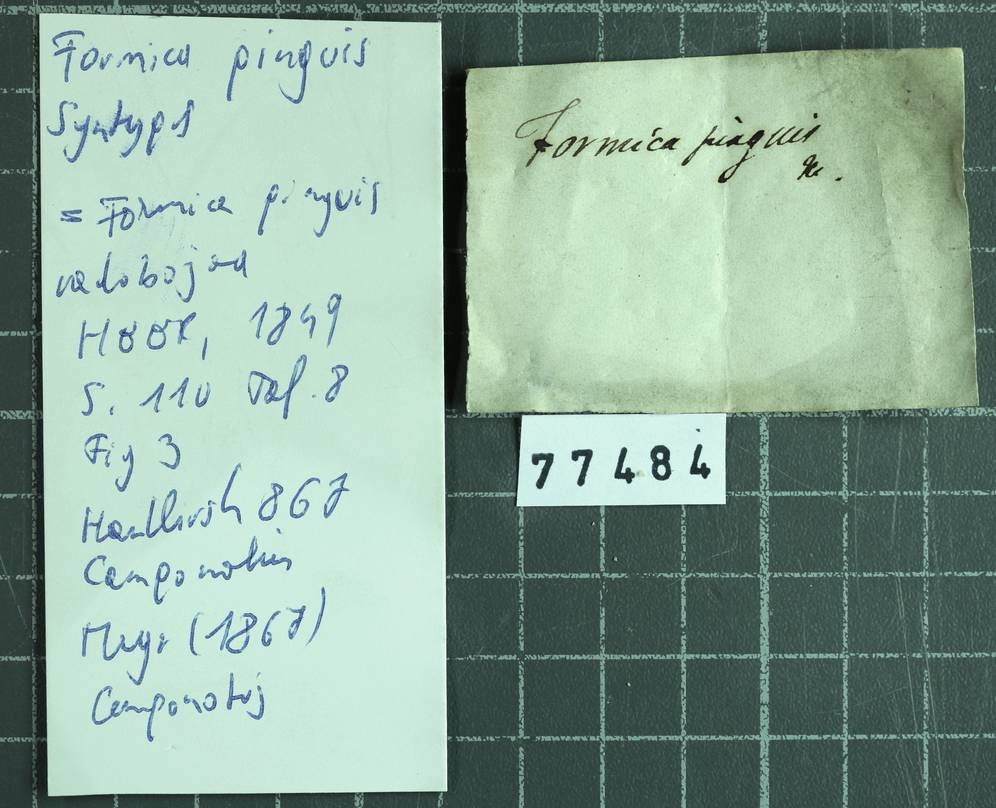 Formica pinguis
Syntyps
= Formica pinguis
radobojana
HEER, 1849
S. 110 Taf. 8
Fig 3
Handlirsch 867
Camponotus
Mayr (1867)
Camponotus
Formica pinguis
77484